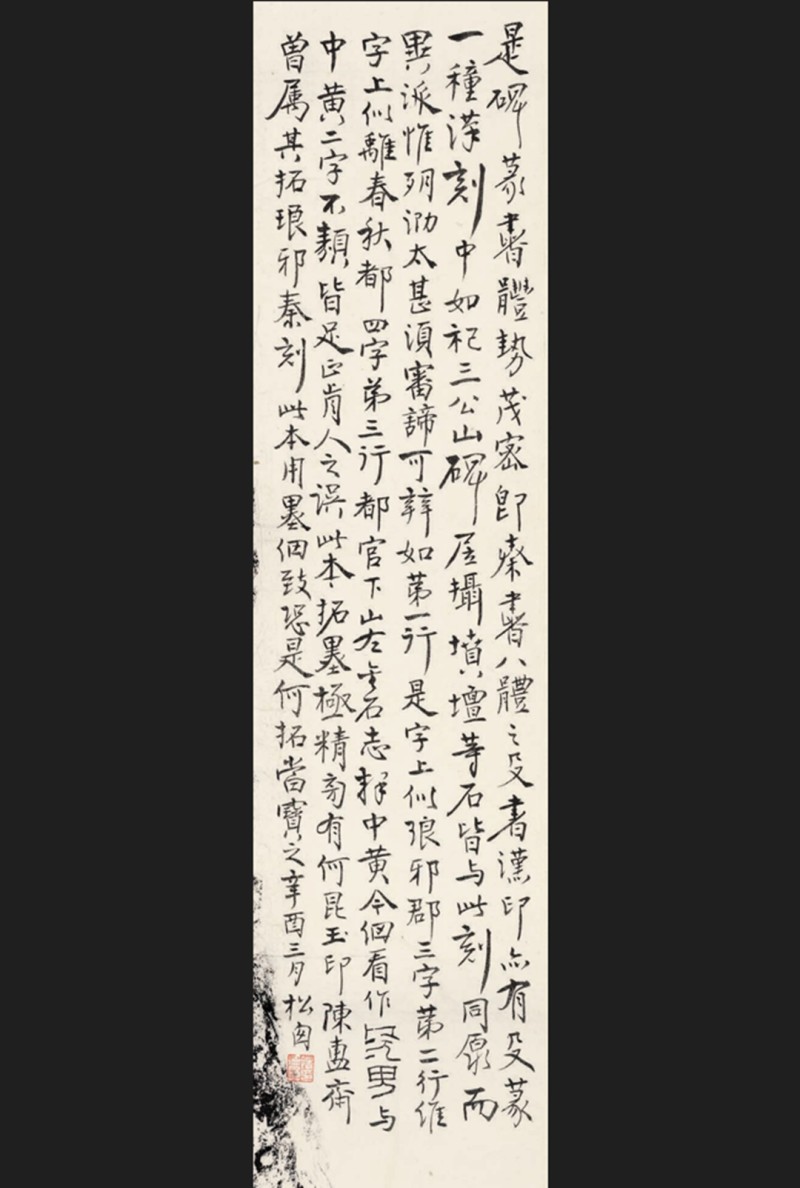 是碑篆書體勢茂密即秦書八體之殳書漢印亦有殳篆
一種漢刻中如祀三公山碑居攝墳壇等石皆与此刻同原而
異派惟剝泐太甚須審諦可辨如苐一行是字上似琅邪郡三字苐二行維
字上似離春秋都四字苐三行都官下山左金石志釋中黃今細看作男与
中黃二字不類皆足正前人之誤此本拓墨極精旁有何昆玉印陳簠齋
曾属其拓琅邪秦刻此本用墨細致恐是何拓當寶之辛酉三月松窗